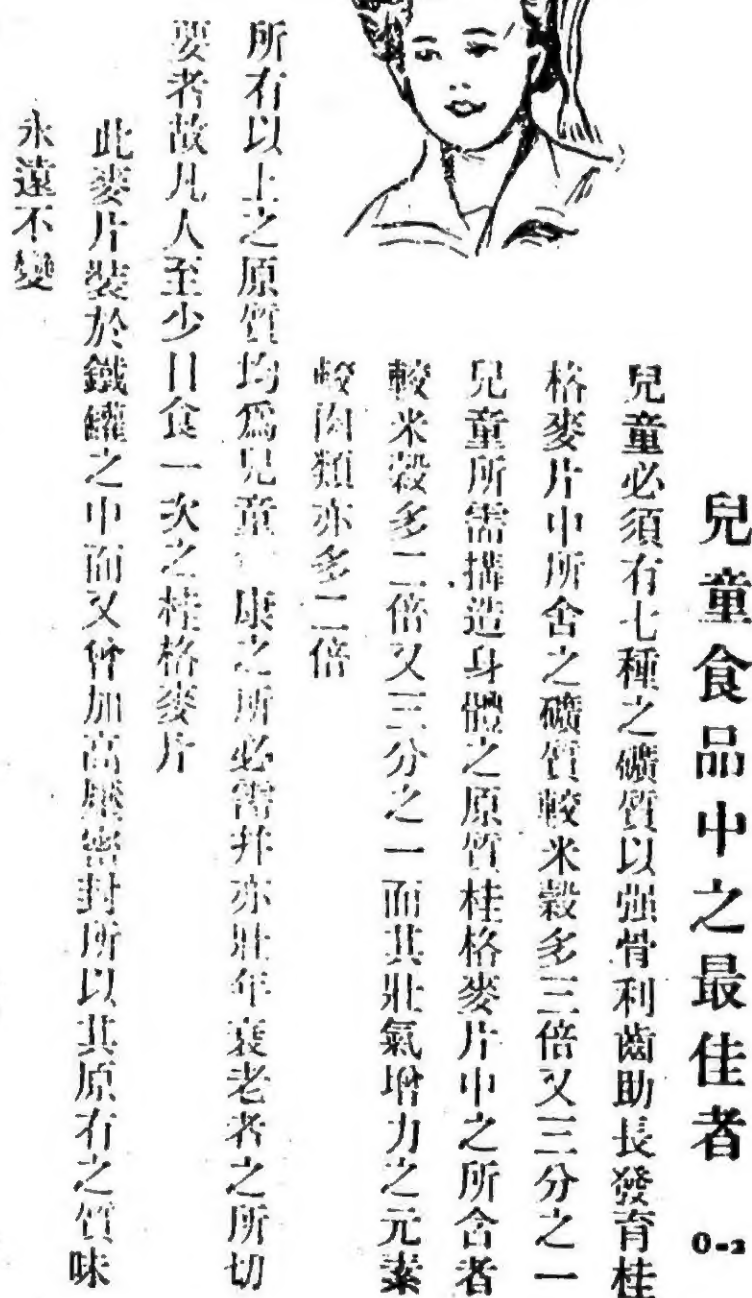 兒童食品中之最佳者 0-2
兒童必須有七種之礦質以强骨利齒助長發育桂
格麥片中所含之礦質較米穀多三倍又三分之一
兒童所需搆造身體之原質桂格麥片中之所含者
較米穀多二倍又三分之一而其壯氣增力之元素
較肉類亦多二倍
所有以上之原質均爲兒童 康之所必需幷亦壯年衰老者之所切
要者故凡人至少日食一次之桂格麥片
此麥片裝於鐵罐之中而又曾加高壓密封所以其原有之質味
永遠不變